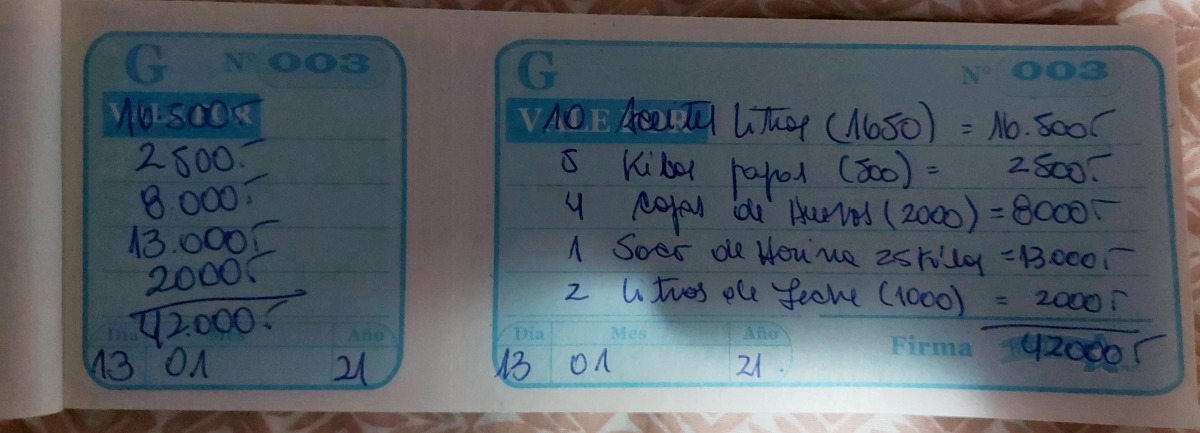 G N° 003
VALE POR
16.500.-
2500.-
8.000.-
13.000.-
2000.-
42.000.-
Día Mes Año
13 01 21
G N° 003
VALE POR
10 Aceites litros (1650) = 16.500.-
5 Kilos papas (500) = 2500.-
4 cajas de Huevos (2000) = 8000.-
1 Saco de Harina 25 Kilos = 13.000.-
2 litros de Leche (1000) = 2000.-
42000.-
Día Mes Año Firma
13 01 21.